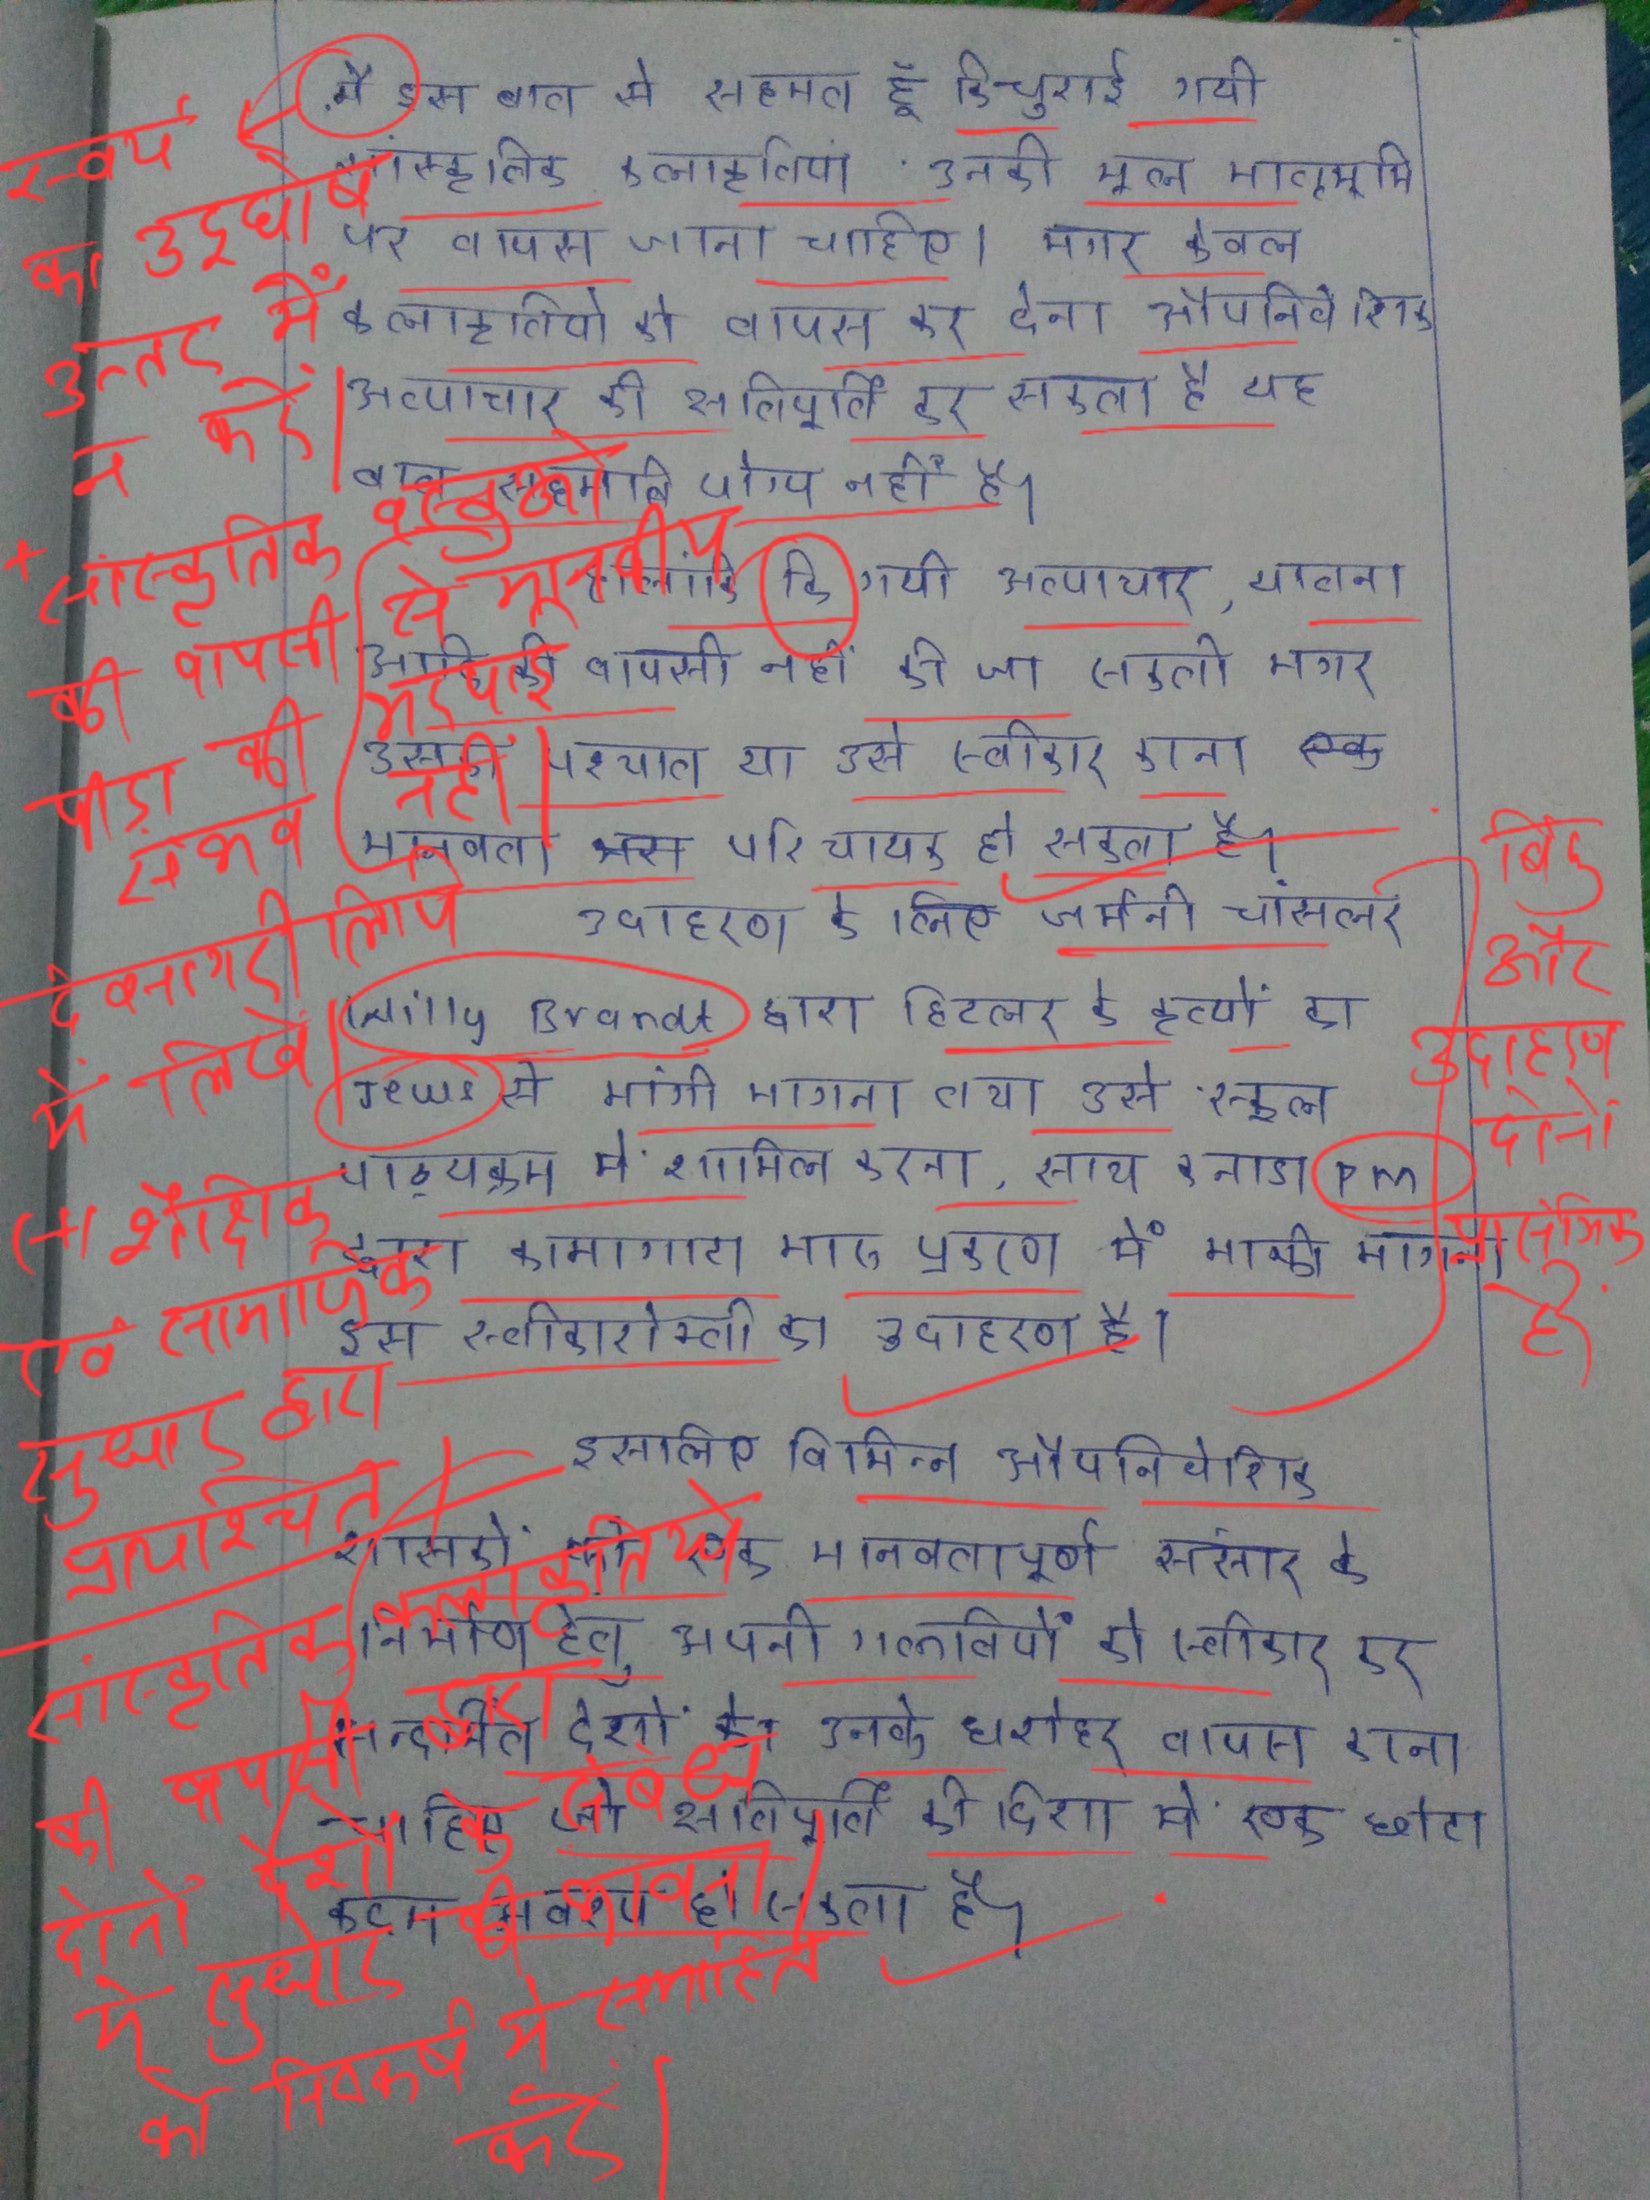 मै इस बात से सहमत हूँ कि चुराई गयी
सांस्कृतिक कलाकृतियां उनकी मूल मातृभूमि
पर वापस जाना चाहिए। मगर केवल
कलाकृतियो को वापस कर देना औपनिवेशिक
अत्याचार की क्षतिपूर्ति कर सकता है यह
बात सहमति योग्य नहीं है।
हालांकि कि गयी अत्याचार, यातना
आदि की वापसी नहीं की जा सकती मगर
उसकी पश्चात या उसे स्वीकार करना एक
मानवता परिचायक हो सकता है।
उदाहरण के लिए जर्मनी चांसलर
Willy Brandt द्वारा हिटलर के कृत्यों का
Jews से मांगी मागना तथा उसे स्कूल
पाठ्यक्रम मे शामिल करना, साथ कनाडा PM
द्वारा कामागाटा मारु प्रकरण में माफी मागना
इस स्वीकारोक्ती का उदाहरण है।
इसलिए विभिन्न औपनिवेशिक
शासकों को एक मानवतापूर्ण संसार के
निर्माण हेतु अपनी गलतियों को स्वीकार कर
सन्दर्भित देशों को उनके धरोहर वापस करना
चाहिए जो क्षतिपूर्ति की दिशा मे एक छोटा
कदम अवश्य हो सकता है।
स्वयं
का उद्घोष
उत्तर में
न करें।
+ सांस्कृतिक वस्तुओ
की वापसी से मानवीय
पीड़ा की भरपाई
संभव नहीं।
देवनागरी लिपि
में लिखें।
शैक्षिक
एवं सामाजिक
सुधार द्वारा
प्रायश्चित
सांस्कृतिक कलाकृतियो
की वापसी द्वारा
दोनों देशों के संबंध
मे सुधार की भावना
को निष्कर्ष मे समाहित
करें।
बिंदु
और
उदाहरण
दोनों
प्रासंगिक
हैं